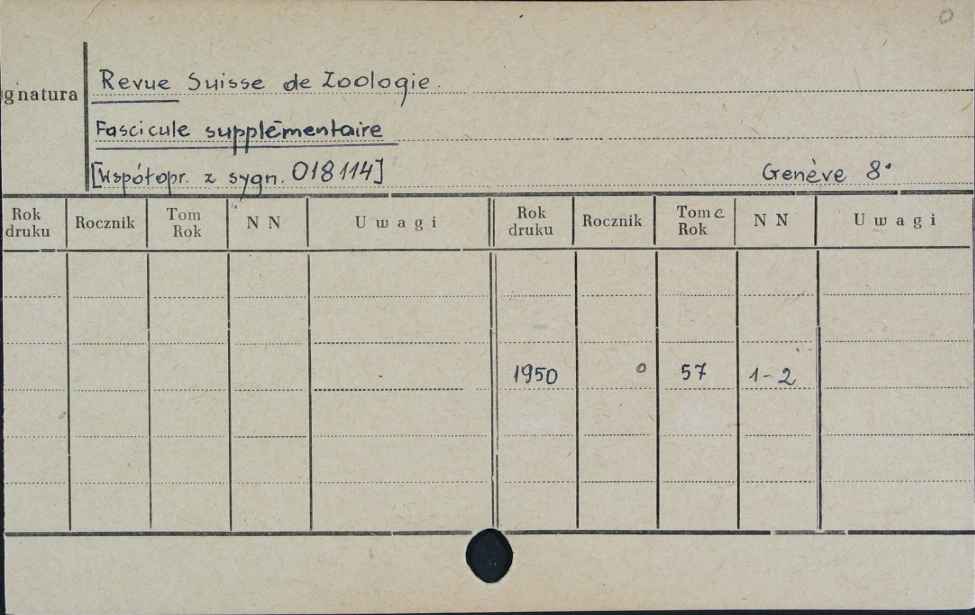 0
gnatura
Revue Suisse de Zoologie.
Fascicule supplémentaire
[Współopr. z sygn. 018114] Genève 8°
Rok druku Rocznik Tom Rok N N Uwagi Rok druku Rocznik Tom Rok N N Uwagi
1950 0 57 1-2